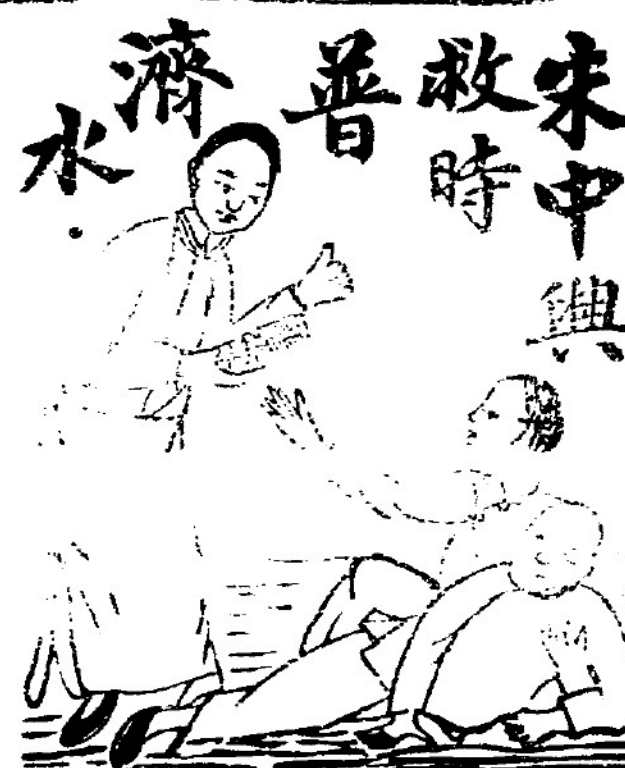 宋中興
救時
普
濟
水